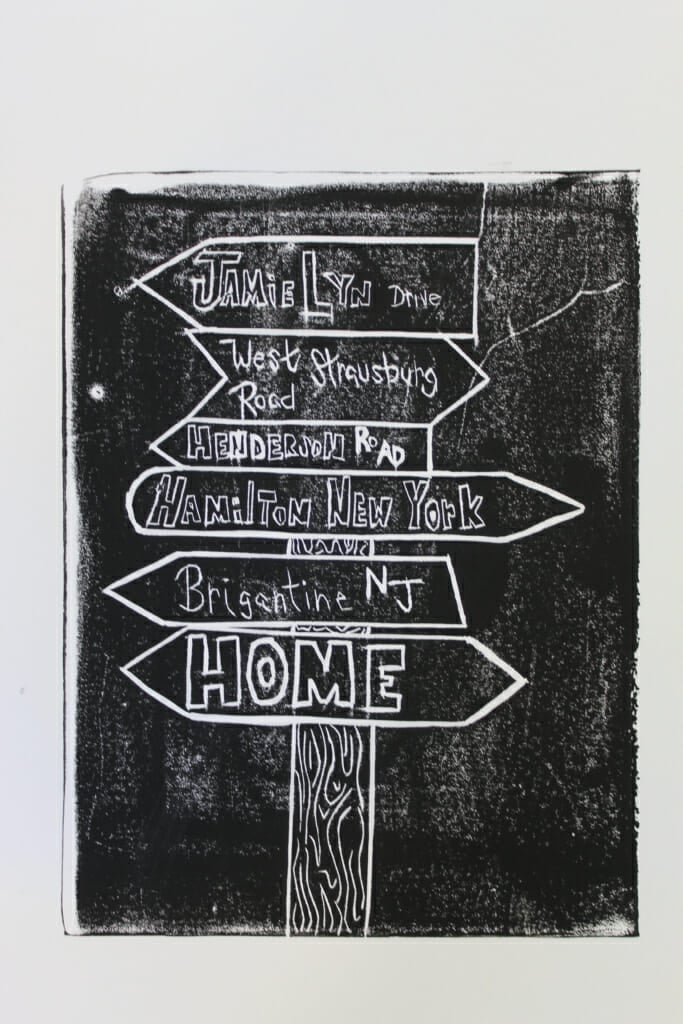 JAMiE LYN Drive
West Strausburg
Road
HENDERSON ROAD
HAMilTON NEW YORK
Brigantine NJ
HOME